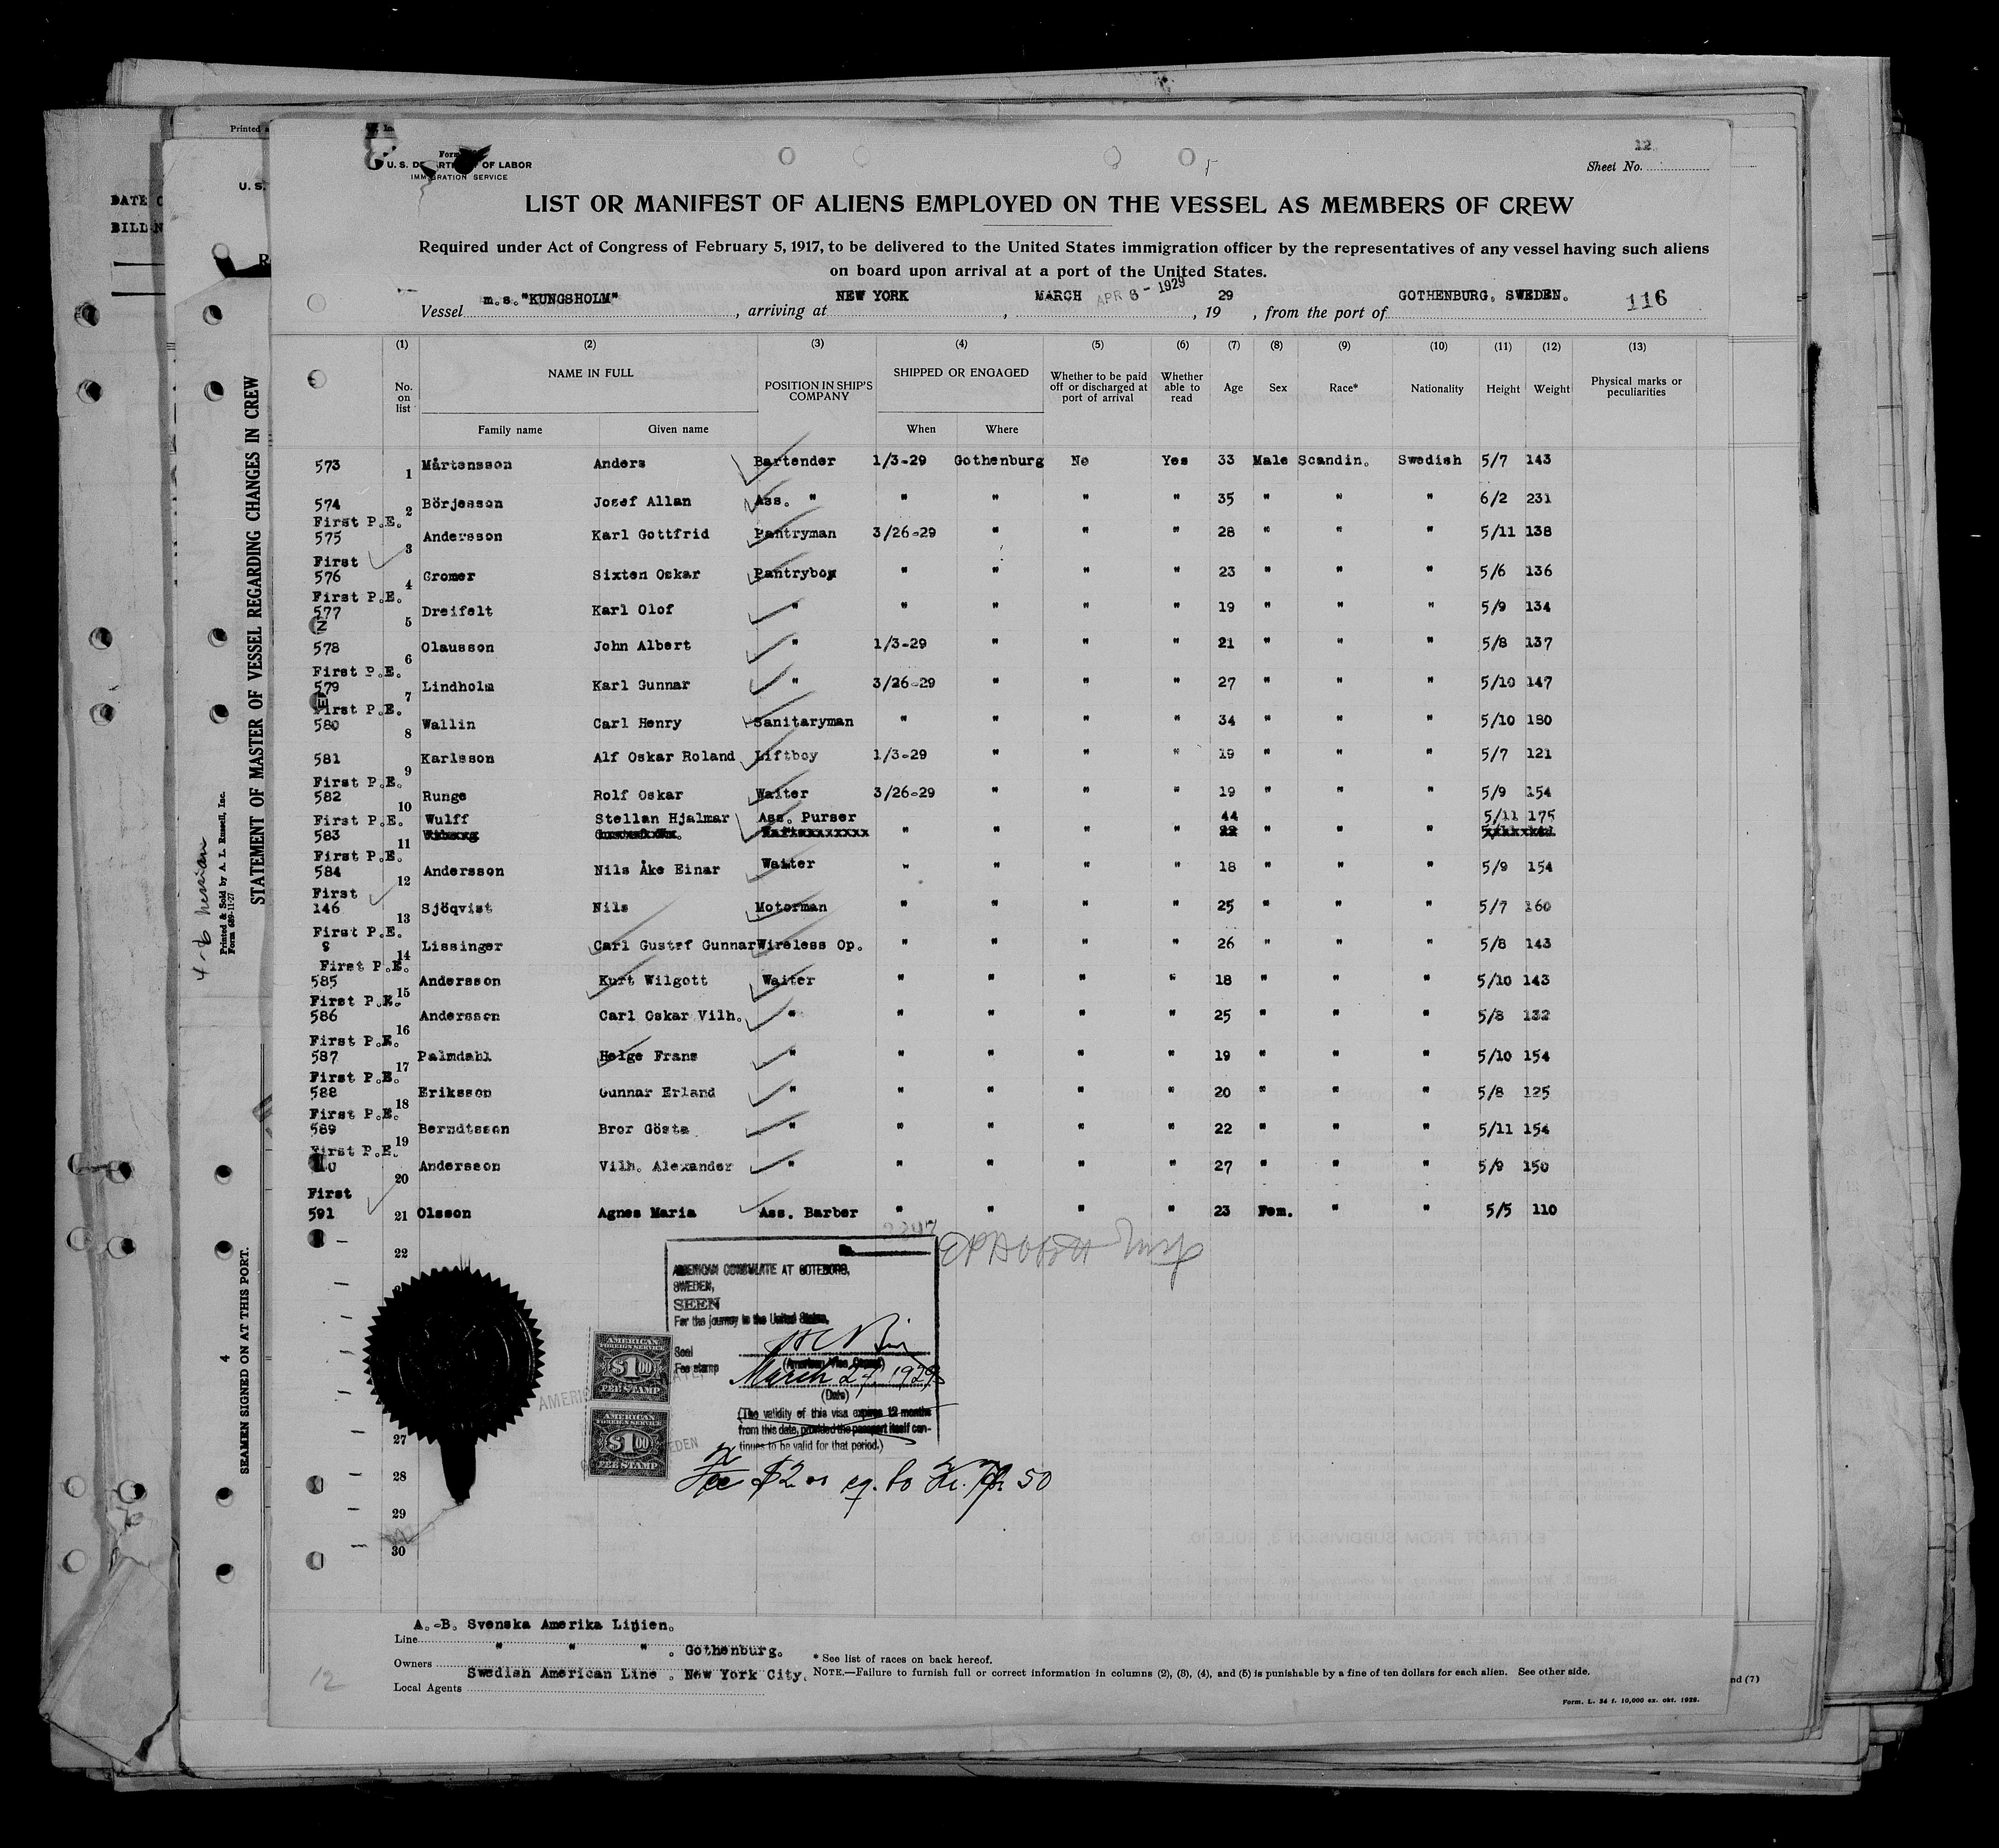 Printed a
DATE O
BILL N
U. S.
R
STATEMENT OF MASTER OF VESSEL REGARDING CHANGES IN CREW
Printed & Sold by A. L. Russell, Inc.
Form 689-11-27
SEAMEN SIGNED ON AT THIS PORT.
4
Form
U. S. DEPARTMENT OF LABOR
IMMIGRATION SERVICE
12
Sheet No.
LIST OR MANIFEST OF ALIENS EMPLOYED ON THE VESSEL AS MEMBERS OF CREW
Required under Act of Congress of February 5, 1917, to be delivered to the United States immigration officer by the representatives of any vessel having such aliens
on board upon arrival at a port of the United States.
Vessel m.s."KUNGSHOLM", arriving at NEW YORK, MARCH APR 8 - 1929, 19 29, from the port of GOTHENBURG, SWEDEN. 116
(1) (2) (3) (4) (5) (6) (7) (8) (9) (10) (11) (12) (13)
No. on list NAME IN FULL POSITION IN SHIP'S COMPANY SHIPPED OR ENGAGED Whether to be paid off or discharged at port of arrival Whether able to read Age Sex Race* Nationality Height Weight Physical marks or peculiarities
Family name Given name When Where
573 1 Mårtensson Anders Bartender 1/3-29 Gothenburg No Yes 33 Male Scandin. Swedish 5/7 143
574 2 Börjesson Josef Allan Ass. " " " " " 35 " " " 6/2 231
First P.E.
575 3 Andersson Karl Gottfrid Pantryman 3/26-29 " " " 28 " " " 5/11 138
First
576 4 Gromer Sixten Oskar Pantryboy " " " " 23 " " " 5/6 136
First P.E.
577 5 Dreifelt Karl Olof " " " " " 19 " " " 5/9 134
578 6 Olausson John Albert " 1/3-29 " " " 21 " " " 5/8 137
First P.E.
579 7 Lindholm Karl Gunnar " 3/26-29 " " " 27 " " " 5/10 147
First P.E.
580 8 Wallin Carl Henry Sanitaryman " " " " 34 " " " 5/10 180
581 9 Karlsson Alf Oskar Roland Liftboy 1/3-29 " " " 19 " " " 5/7 121
First P.E.
582 10 Runge Rolf Oskar Waiter 3/26-29 " " " 19 " " " 5/9 154
First P.E. Wulff Stellan Hjalmar Ass. Purser 44 5/11 175
583 11 " " " " 22 " " "
First P.E.
584 12 Andersson Nils Åke Einar Waiter " " " " 18 " " " 5/9 154
First
146 13 Sjöqvist Nils Motorman " " " " 25 " " " 5/7 160
First P.E.
9 14 Lissinger Carl Gustaf Gunnar Wireless Op. " " " " 26 " " " 5/8 143
First P.E.
585 15 Andersson Kurt Wilgott Waiter " " " " 18 " " " 5/10 143
First P.E.
586 16 Andersson Carl Oskar Vilh. " " " " " 25 " " " 5/8 132
First P.E.
587 17 Palmdahl Helge Frans " " " " " 19 " " " 5/10 154
First P.E.
588 18 Eriksson Gunnar Erland " " " " " 20 " " " 5/8 125
First P.E.
589 19 Berndtsson Bror Gösta " " " " " 22 " " " 5/11 154
First P.E.
20 Andersson Vilh. Alexander " " " " " 27 " " " 5/9 150
First
591 21 Olsson Agnes Maria Ass. Barber " " " " 23 Fem. " " 5/5 110
22
27
28
29
30
AMERICAN CONSULATE AT GOTEBORG,
SWEDEN,
SEEN
For the journey to the United States,
Seal
Fee stamp
(American Vice Consul)
March 27, 1929
(Date)
(The validity of this visa expires 12 months
from this date, provided the passport itself con-
tinues to be valid for that period.)
AMERICAN
FOREIGN SERVICE
$1.00
FEE STAMP
AMERICAN
FOREIGN SERVICE
$1.00
FEE STAMP
Fee $2 eq. to Kr. 50
Line A.-B. Svenska Amerika Linien.
Owners " " " , Gothenburg.
Local Agents Swedish American Line , New York City.
* See list of races on back hereof.
NOTE.—Failure to furnish full or correct information in columns (2), (3), (4), and (5) is punishable by a fine of ten dollars for each alien. See other side.
nd (7)
Form. L. 34 f. 10,000 ex. okt. 1928.
12